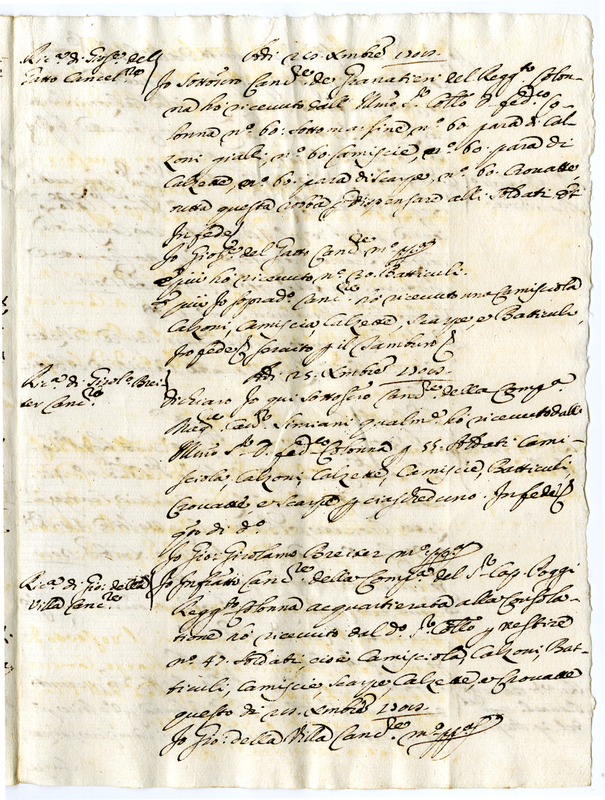 Ric.ª di Gios.e del
Gatto Cancel.re
Adi 20 Xmbre
Io Sottos.to Canc.re de Granatieri del Regg.to Colon-
na hò ricevuto dall' Illmo S.r Collo D. fed.co Co-
lonna nº 60: sottomarsine, nº 60 para di Cal-
zoni gialli, nº 60 Camiscie, nº 60 para di
Calzette, nº 60: para di scarpe, nº 60. Crovatte,
tutta questa robba p dispensare alli Soldati
In fede
Io Gios.e del Gatto Canc.re m.º pp.ª
E più hò ricevuto nº 20. Batticuli.
E più Io soprad.º Canc.re hò ricevuto una Camisciola
Calzoni, Camiscie, Calzette, Scarpe, e Batticuli,
In fede servito p il Tamburo
Ric.ª di Girol.º Brei-
ter Canc.re
Adi 25. Xmbre
Dichiaro Io qui Sottos.to Canc.re della Comp.ª
del Simiani qualm.e hò ricevuto dall'
Illmo S.r D. fed.co Colonna p 55. Soldati Cami-
sciola, Calzoni, Calzette, Camiscie, Batticuli,
Crovatte e Scarpe p ciascheduno. In fede
q.to di d.º
Io Gio: Girolamo Breiter m.º pp.ª
Ric.ª di Gio: della
Villa Canc.re
Io Infratto Canc.re della Comp.ª del S.r Cap. Poggi
Regg.to Colonna acquartierata alla Consola-
tione hò ricevuto dal d.º S.r Collo p vestire
nº 47. Soldati, cioè Camisciola, Calzoni, Bat-
ticuli, Camiscie, Scarpe, Calzette, e Crovatte
questo di Xmbre
Io Gio: della Villa Canc.re m.º pp.ª